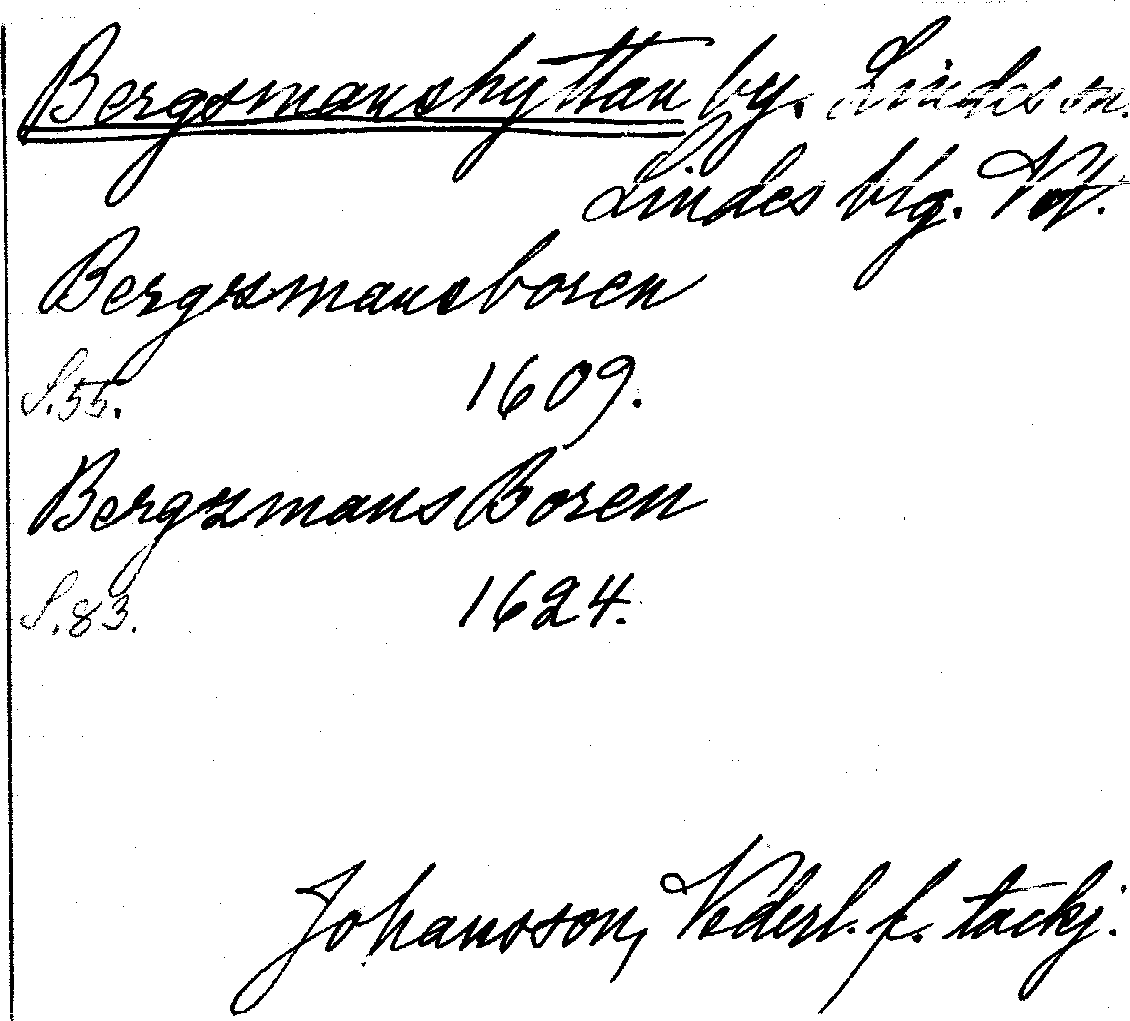 Bergsmanshyttan by. Lindes sn.
Lindes blg. Vstl.
Bergzmansboren
S.55. 1609.
Bergzmans Boren
S.83. 1624.
Johansson, Vederl. f. tackj.